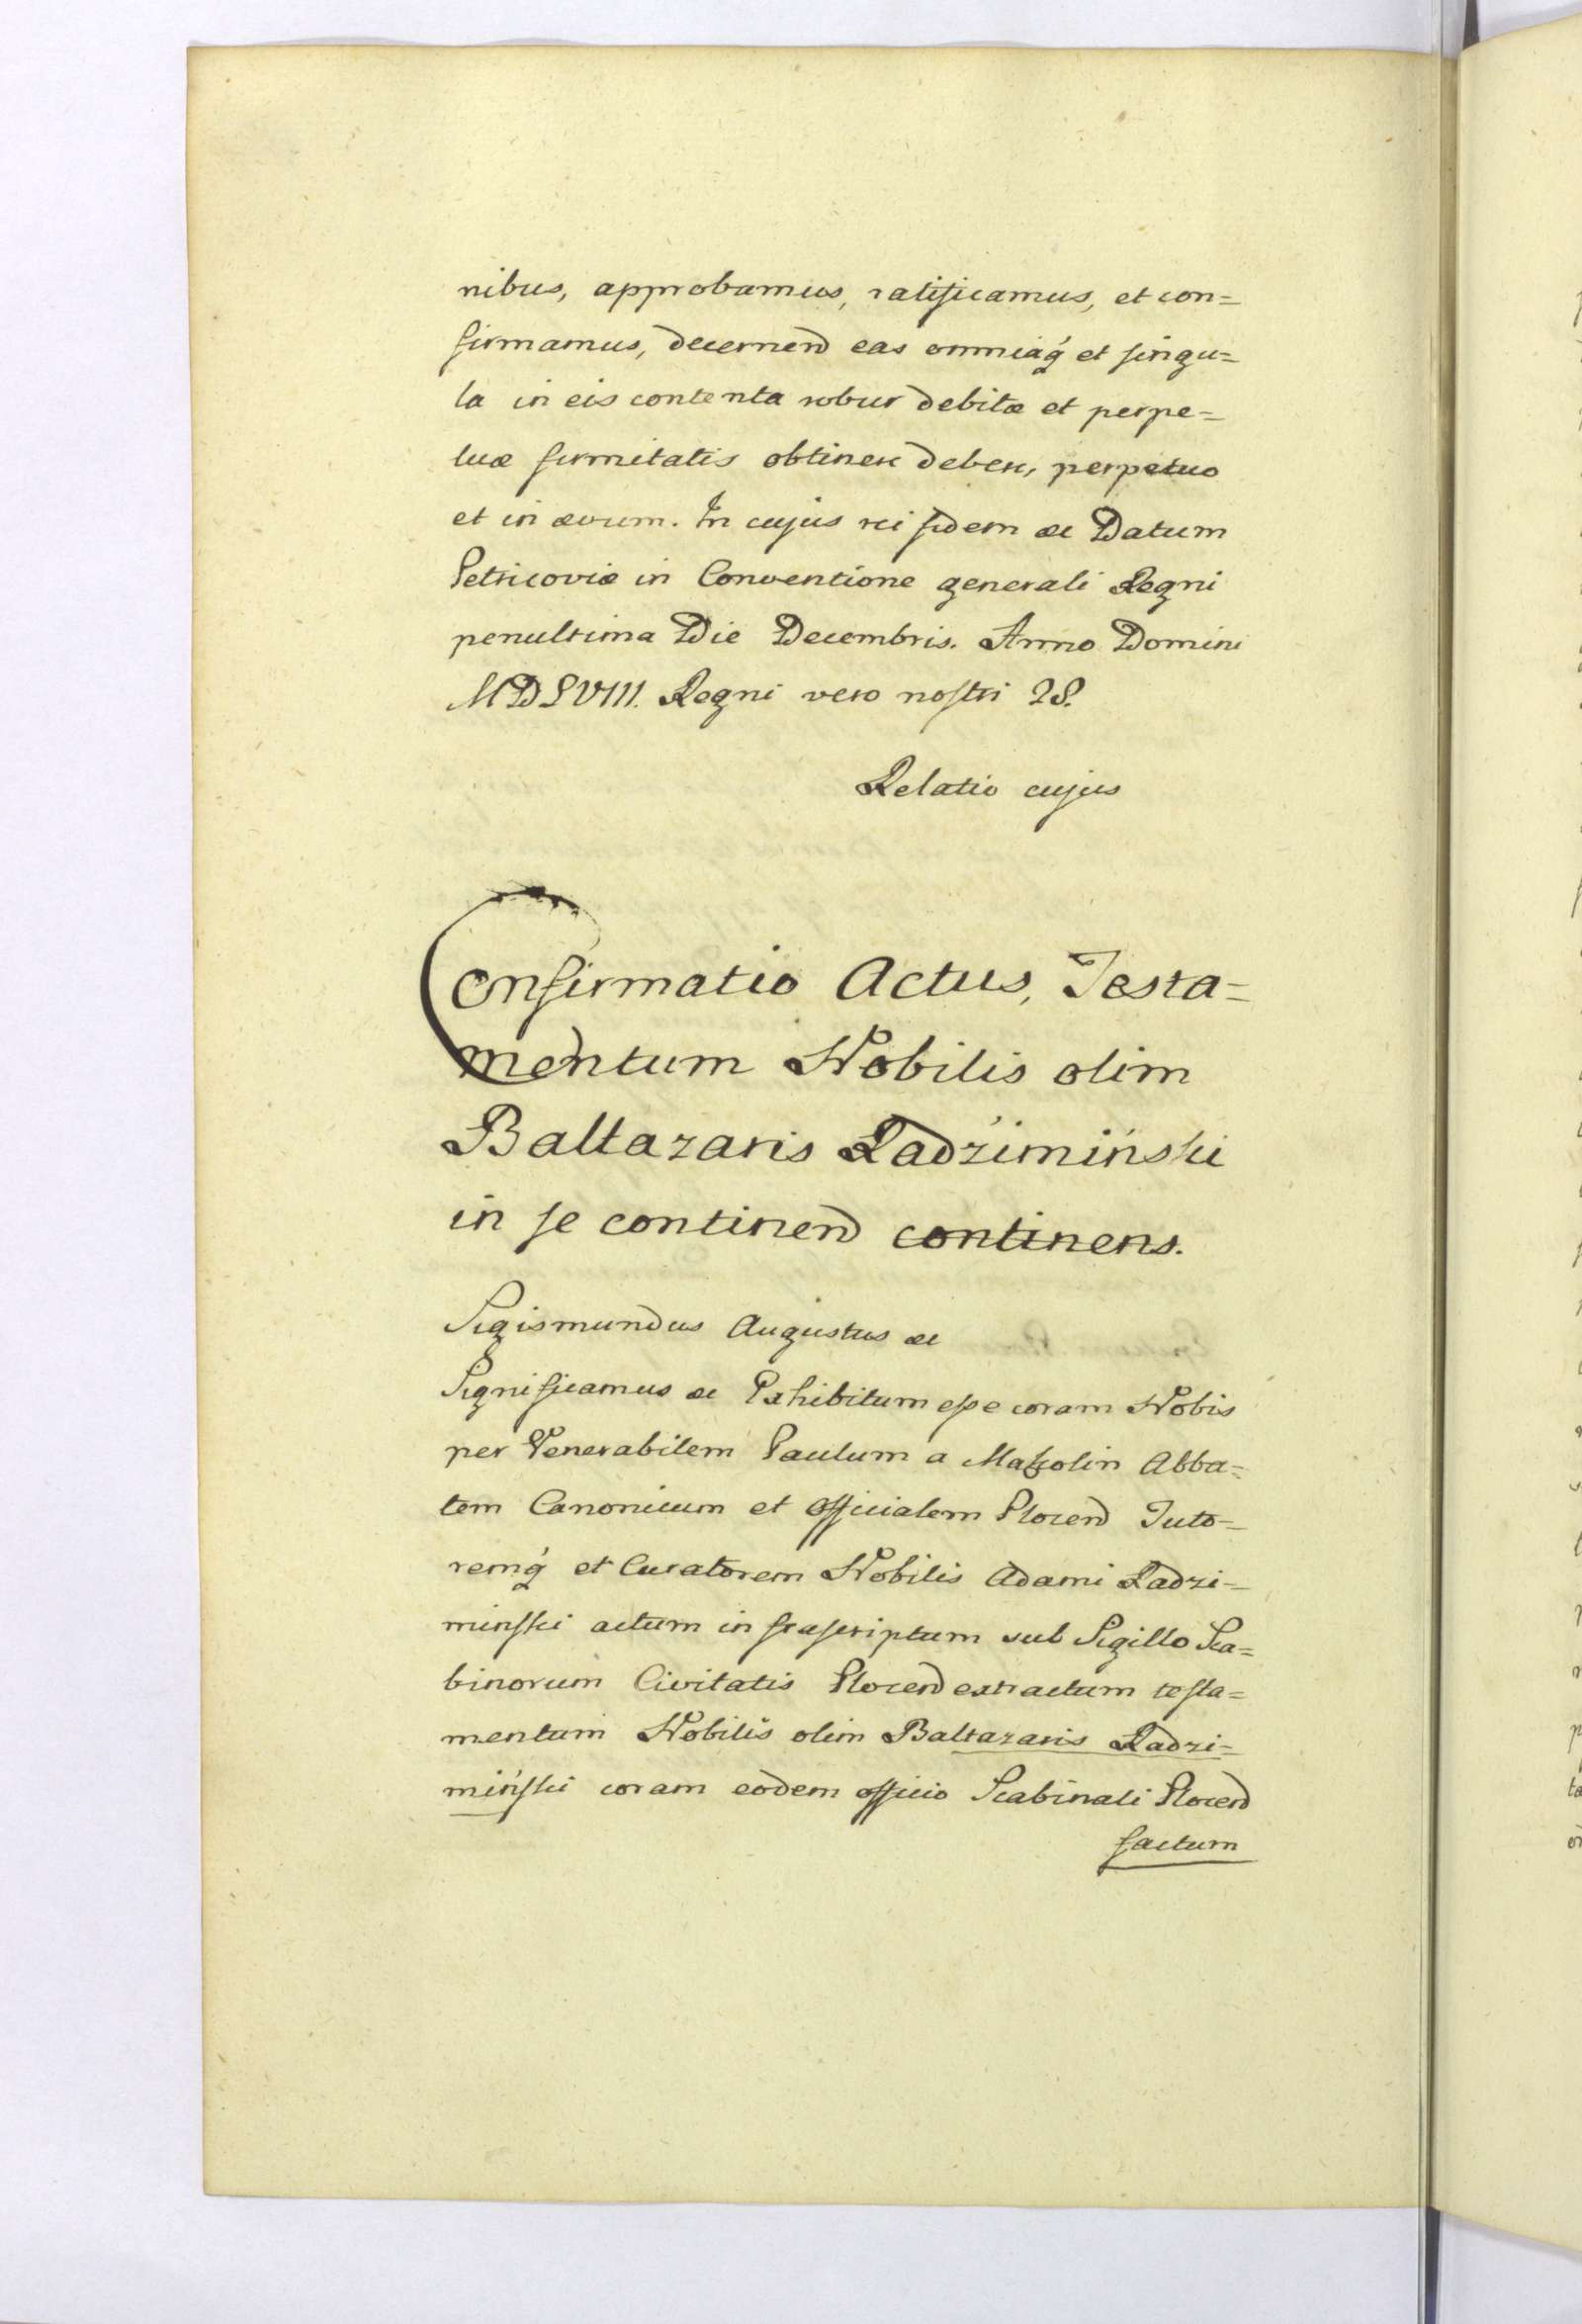 nibus, approbamus, ratificamus, et con=
firmamus, decernend eas omniaq́ et singu=
la in eis contenta robur debitæ et perpe=
tuæ firmitatis obtinere debere, perpetuo
et in ævum. In cujus rei fidem &c Datum
Petricoviæ in Conventione generali Regni
penultima Die Decembris. Anno Domini
MDLVIII. Regni vero nostri 28.
Relatio cujus
Confirmatio Actus, Testa=
mentum Nobilis olim
Baltazaris Radzimiński
in se continend continens.
Sigismundus Augustus &c
Significamus &c Exhibitum esse coram Nobis
per Venerabilem Paulum a Abba=
tem Canonicum et Officialem Plocend Tuto=
remq́ et Curatorem Nobilis Adami Radzi=
minski actum infrascriptum sub Sigillo Sca=
binorum Civitatis Plocend extractum testa=
mentum Nobilis olim Baltazaris Radzi=
miński coram eodem officio Scabinali Plocend
factum